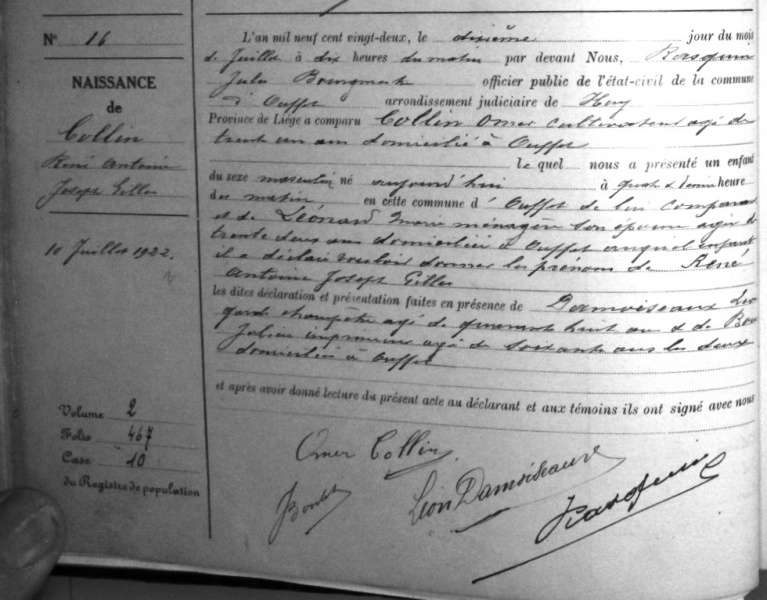 N° 16
NAISSANCE
de
Collin
René Antoine
Joseph Gilles
10 Juillet 1922.
Volume 2
Folio 467
Case 10
du Registre de population
L'an mil neuf cent vingt-deux, le dixième jour du mois
de Juillet à dix heures du matin par devant Nous,
Jules Bourgmestre officier public de l'état-civil de la commune
d'Ouffet arrondissement judiciaire de Huy
Province de Liége a comparu Collin Omer cultivateur agé de
trente un ans domicilié à Ouffet
le quel nous a présenté un enfant
du sexe masculin né aujourd'hui à quatre & demie heure
du matin, en cette commune d'Ouffet de lui comparant
et de Léonard Marie ménagère son épouse agée de
trente deux ans domiciliée à Ouffet auquel enfant
il a déclaré vouloir donner les prénoms de René
Antoine Joseph Gilles
les dites déclaration et présentation faites en présence de Damoiseaux Léon
garde champêtre agé de quarante huit ans & de
Julien imprimeur agé de soixante ans les deux
domiciliés à Ouffet
et après avoir donné lecture du présent acte au déclarant et aux témoins ils ont signé avec nous
Omer Collin
Léon Damoiseaux